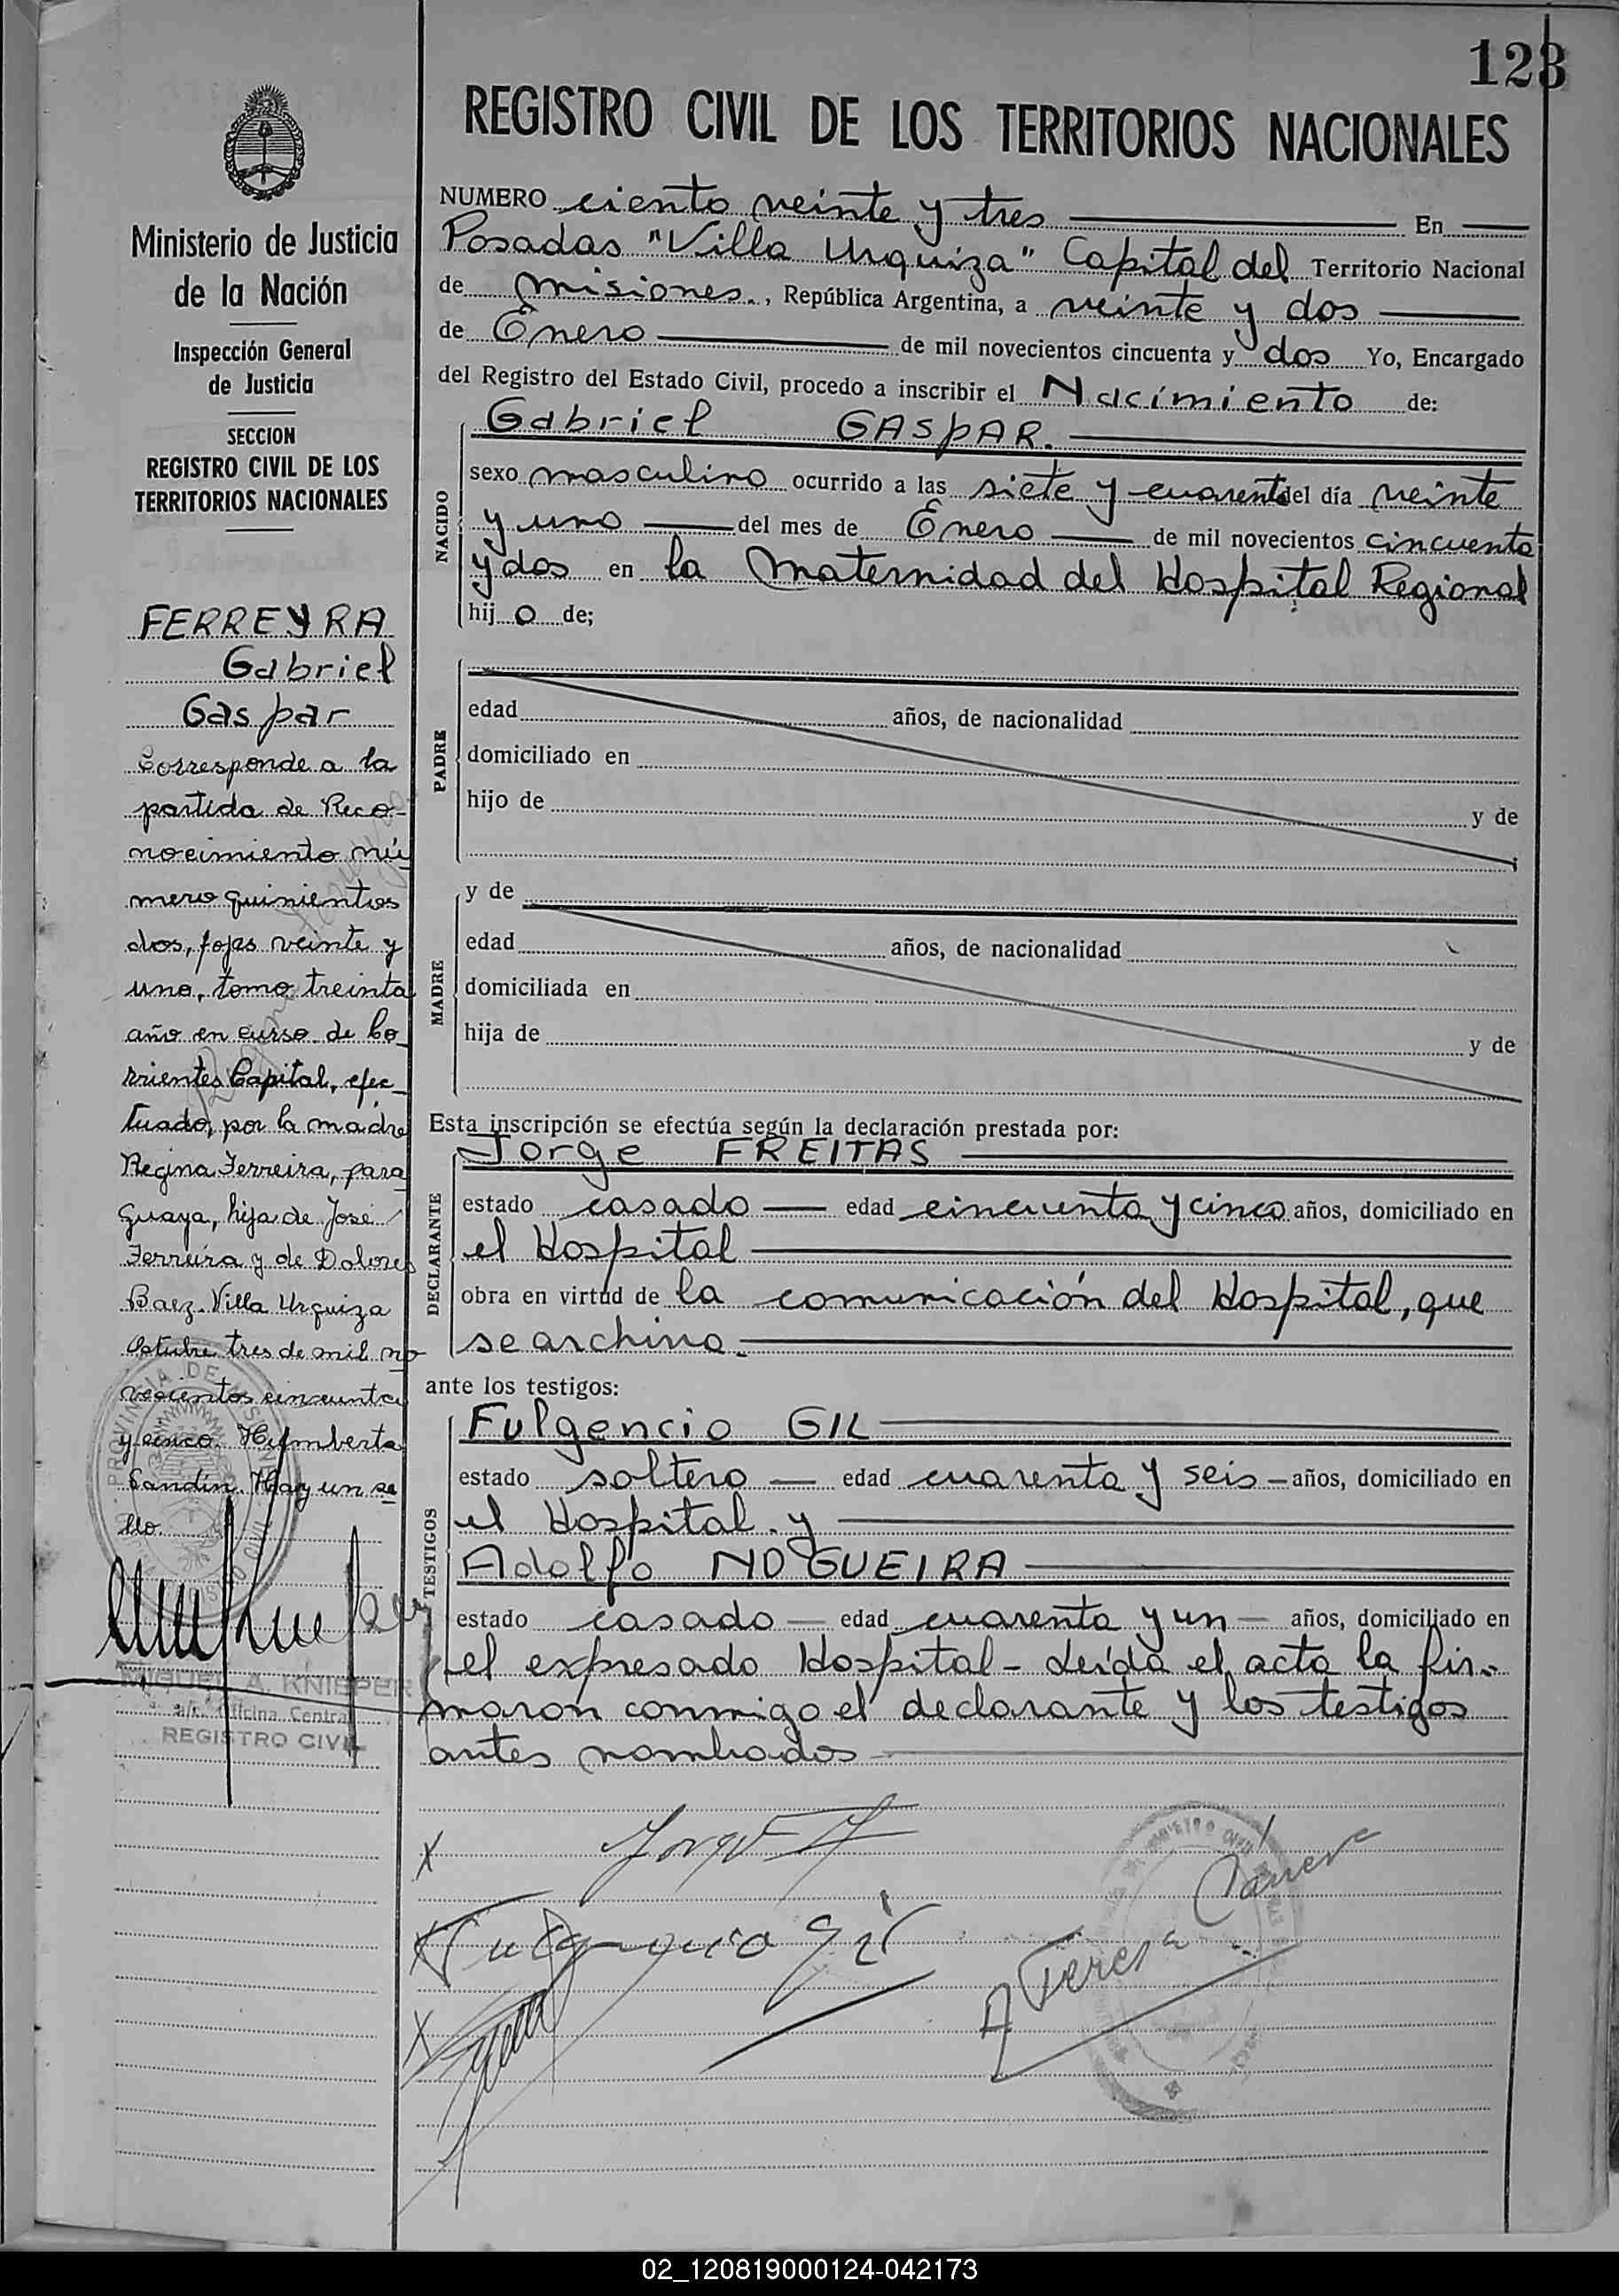 123
REGISTRO CIVIL DE LOS TERRITORIOS NACIONALES
Ministerio de Justicia
de la Nación
Inspección General
de Justicia
SECCION
REGISTRO CIVIL DE LOS
TERRITORIOS NACIONALES
FERREYRA
Gabriel
Gaspar
Corresponde a la
partida de Reco-
nocimiento nú
mero quinientos
dos, fojas veinte y
uno, tomo treinta
año en curso de Co_
rrientes Capital, efec_
tuado, por la madre
Regina Ferreira, para
guaya, hija de José
Ferreira y de Dolores
Baez. Villa Urquiza
Octubre tres de mil no
vecientos cincuenta
y cinco. Humberto
Candin. Hay un se
llo.
PROVINCIA DE MISIONES
MIGUEL A. KNIEPPER
a/c. Oficina Central
REGISTRO CIVIL
NUMERO ciento veinte y tres En
Posadas "Villa Urquiza" Capital del Territorio Nacional
de Misiones., República Argentina, a veinte y dos
de Enero de mil novecientos cincuenta y dos Yo, Encargado
del Registro del Estado Civil, procedo a inscribir el Nacimiento de:
NACIDO
Gabriel GASPAR.
sexo masculino ocurrido a las siete y cuarenta del día veinte
y uno del mes de Enero de mil novecientos cincuenta
y dos en la Maternidad del Hospital Regional
hijo de;
PADRE
edad años, de nacionalidad
domiciliado en
hijo de y de
;
MADRE
y de
edad años, de nacionalidad
domiciliada en
hija de y de
Esta inscripción se efectúa según la declaración prestada por:
DECLARANTE
Jorge FREITAS
estado casado edad cincuenta y cinco años, domiciliado en
el Hospital
obra en virtud de la comunicación del Hospital, que
se archiva.
ante los testigos:
TESTIGOS
Fulgencio GIL
estado soltero edad cuarenta y seis años, domiciliado en
el Hospital. y
Adolfo NOGUEIRA
estado casado edad cuarenta y un años, domiciliado en
el expresado Hospital - Leída el acta la fir-
maron conmigo el declarante y los testigos
antes nombrados
X Jorge F
X Fulgencio Gil
X
A Teresa
02_120819000124-042173